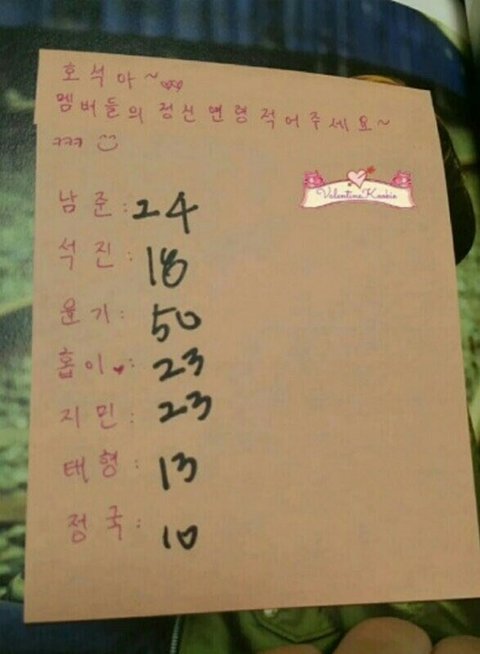 호석아~
멤버들의 정신연령적어주세요~
ㅋㅋㅋ
Valentine Kookie
남준: 24
석진: 18
윤기: 50
홉이♥: 23
지민: 23
태형: 13
정국: 10